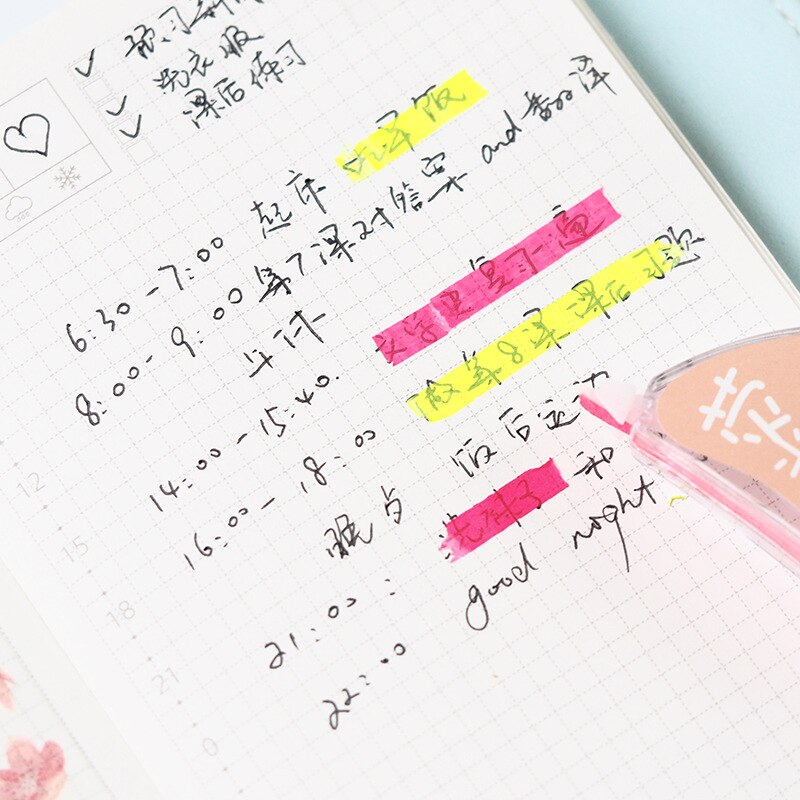 预习新
洗衣服
课后练习
6:30-7:00 起床 吃早饭
8:00-9:00 第7课对答案 and 翻译
午休
14:00-15:40 文学史复习一遍
16:00-18:00 做第8课课后习题
晚点 饭后运动
21:00: 洗 和
22:00 good night
12
15
18
21
0